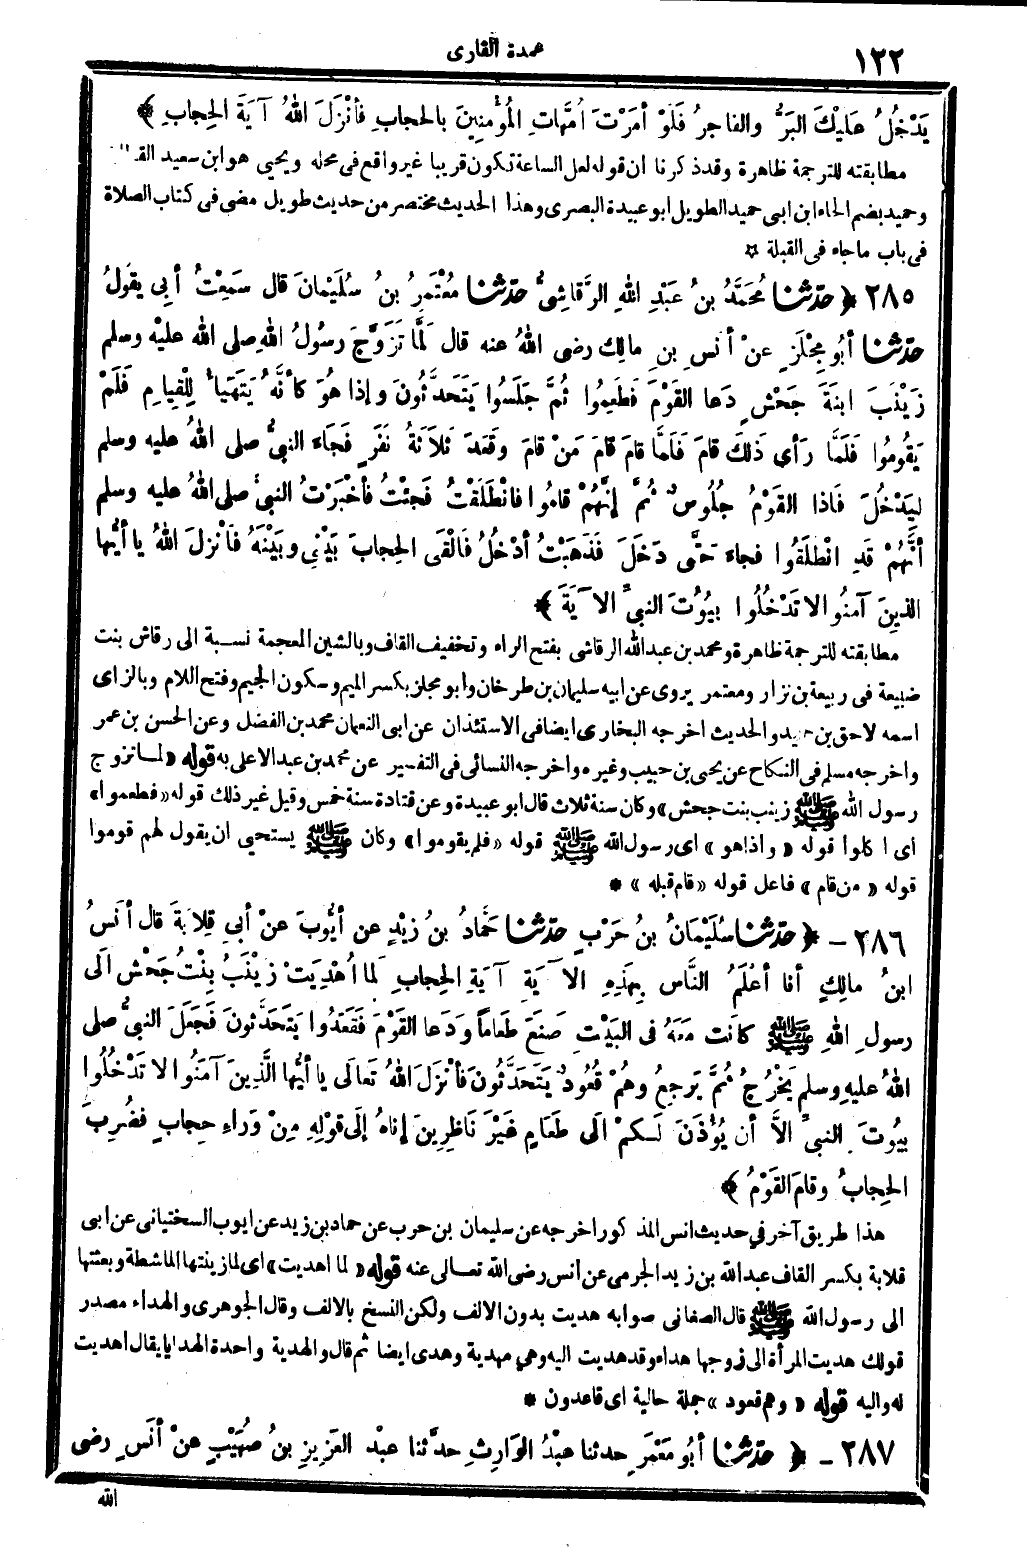 ١٢٢
عمدة القارى
يَدْخُلُ عليْكَ البَرُّ والفاجرُ فَلَوْ أمَرْتَ أُمَّهاتِ المُؤْمِنِينَ بالحجابِ فأنْزَلَ اللهُ آيَةَ الحِجابِ ﴾
مطابقته للترجمة ظاهرة وقدذكرنا ان قوله لعل الساعة تكون قريبا غير واقع فى محله ويحيى هو ابن سعيد
وحميد بضم الحاء ابن ابى حميد الطويل ابو عبيدة البصرى وهذا الحديث مختصر من حديث طويل مضى فى كتاب الصلاة
فى باب ماجاء فى القبلة ✡
٢٨٥ ﴿ حدّثنا مُحَمَّدُ بنُ عَبْدِ اللهِ الرَّقاشِىُّ حدّثنا مُعْتَمِرُ بنُ سُلَيْمانَ قال سَمِعْتُ أبِي يقُولُ
حدّثنا أبُو مِجْلَزٍ عنْ أنَسِ بنِ مالِك رضى اللهُ عنه قال لَمَّا تَزَوَّجَ رسُولُ اللهِ صلى الله عليْه وسلم
زَيْنَبَ ابنَةَ جَحْشٍ دَعا القَوْمَ فَطَعِمُوا ثُمَّ جَلَسُوا يَتَحَدَّثُونَ وإذا هُوَ كأنَّهُ يَتَهَيأُ لِلْقِيامِ فَلَمْ
يَقُومُوا فَلَمَّا رَأى ذَلكَ قامَ فَلَمَّا قامَ قامَ مَنْ قامَ وقَعَدَ ثَلاَثَةُ نَفَرٍ فَجَاءَ النبىُّ صلى اللهُ عليه وسلم
لِيَدْخُلَ فَاذا القَوْمُ جُلُوسٌ ثُمَّ إنَّهُمْ قامُوا فانْطَلَقْتُ فَجِئْتُ فأخْبَرْتُ النبىَّ صلى اللهُ عليه وسلم
أنَّهُمْ قَدِ انْطَلَقُوا فجاءَ حَتَّى دَخَلَ فَذَهَبْتُ أدْخُلُ فَألْقَى الحِجابَ بَيْنِي وبَيْنَهُ فَأنْزلَ اللهُ ياأيُّها
الذينَ آمنُوا لا تَدْخُلُوا بيُوتَ النبىِّ الآيَةَ ﴾
مطابقته للترجمة ظاهرة ومحمد بن عبدالله الرقاشى بفتح الراء وتخفيف القاف وبالشين المعجمة نسبة الى رقاش بنت
ضبيعة فى ربيعة بن نزار ومعتمر يروى عن ابيه سليمان بن طرخان وابو مجلز بكسر الميم وسكون الجيم وفتح اللام وبالزاى
اسمه لاحق بن حميد والحديث اخرجه البخارى ايضا فى الاستئذان عن ابى النعمان محمد بن الفضل وعن الحسن بن عمر
واخرجه مسلم فى النكاح عن يحيى بن حبيب وغيره واخرجه النسائى فى التفسير عن محمد بن عبدالاعلى به قوله «لما تزوج
رسول الله ﷺ زينب بنت جحش» وكان سنة ثلاث قال ابو عبيدة وعن قتادة سنة خمس وقيل غير ذلك قوله «فطعموا»
اى اكلوا قوله «واذاهو» اى رسول الله ﷺ قوله «فلم يقوموا» وكان ﷺ يستحيى ان يقول لهم قوموا
قوله «من قام» فاعل قوله «قام قبله» *
٢٨٦ - ﴿ حدّثنا سُلَيْمَانُ بنُ حَرْبٍ حدّثنا حَمَّادُ بنُ زيْدٍ عن أيُّوبَ عنْ أبي قِلابَةَ قال أنَسُ
ابنُ مالِكٍ أنا أعْلَمُ النَّاسِ بِهَذِهِ الآيَةِ آيَةِ الحِجابِ لَما أُهْدِيَتْ زيْنَبُ بِنْتُ جَحْش الَى
رسولِ اللهِ ﷺ كانَت معَهُ فى البَيْتِ صَنَعَ طَعَاماً ودَعا القَوْمَ فَقَعَدُوا يَتَحَدَّثونَ فَجَعَلَ النبىُّ صلى
اللهُ عليهِ وسلم يَخْرُجُ ثُمَّ يَرجِعُ وهُمْ قُعُودٌ يَتَحَدَّثُونَ فأنْزَلَ اللهُ تعالَى ياأيُّها الَّذِينَ آمَنُوا لا تَدْخُلُوا
بيُوتَ النبىِّ الاَّ أن يُؤْذَنَ لَكمْ الَى طَعَامٍ غَيْرَ نَاظِرِينَ إناهُ إلَى قوْلِهِ مِنْ وَراءِ حِجابٍ فضُرِبَ
الحِجابُ وقامَ القَوْمُ ﴾
هذا طريق آخر في حديث انس المذكور اخرجه عن سليمان بن حرب عن حماد بن زيد عن ايوب السختيانى عن ابى
قلابة بكسر القاف عبدالله بن زيد الجرمى عن انس رضى الله تعالى عنه قوله «لما اهديت» اى لما زينتها الماشطة وبعثتها
الى رسول الله ﷺ قال الصغانى صوابه هديت بدون الالف ولكن النسخ بالالف وقال الجوهرى والهداء مصدر
قولك هديت المرأة الى زوجها هداء وقد هديت اليه وهي مهدية وهدى ايضا ثم قال والهدية واحدة الهدايا يقال اهديت
له واليه قوله «وهم قعود» جملة حالية اى قاعدون *
٢٨٧ - ﴿ حدّثنا أبُو مَعْمَرٍ حدثنا عبْدُ الوَارِثِ حدَّثنا عبْد العَزِيزِ بنُ صُهَيْبٍ عنْ أنَسٍ رضى
الله